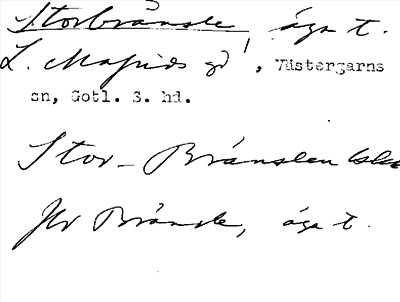 Storbränsle, äga t.
L. Mafrids gd, Västergarns
sn, Gotl. S. hd.
Stor-Bränslen
Jfr Bränsle, äga t.